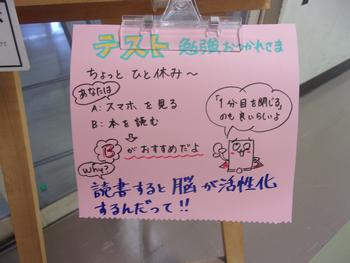 テスト 勉強おつかれさま
ちょっと ひと休み〜
あなたは
A: スマホ を 見る
B: 本を 読む
⇩
B がおすすめだよ
「1分 目を閉じる」
のも 良いらいよ
Why?
読書すると 脳 が 活性化
するんだって!!